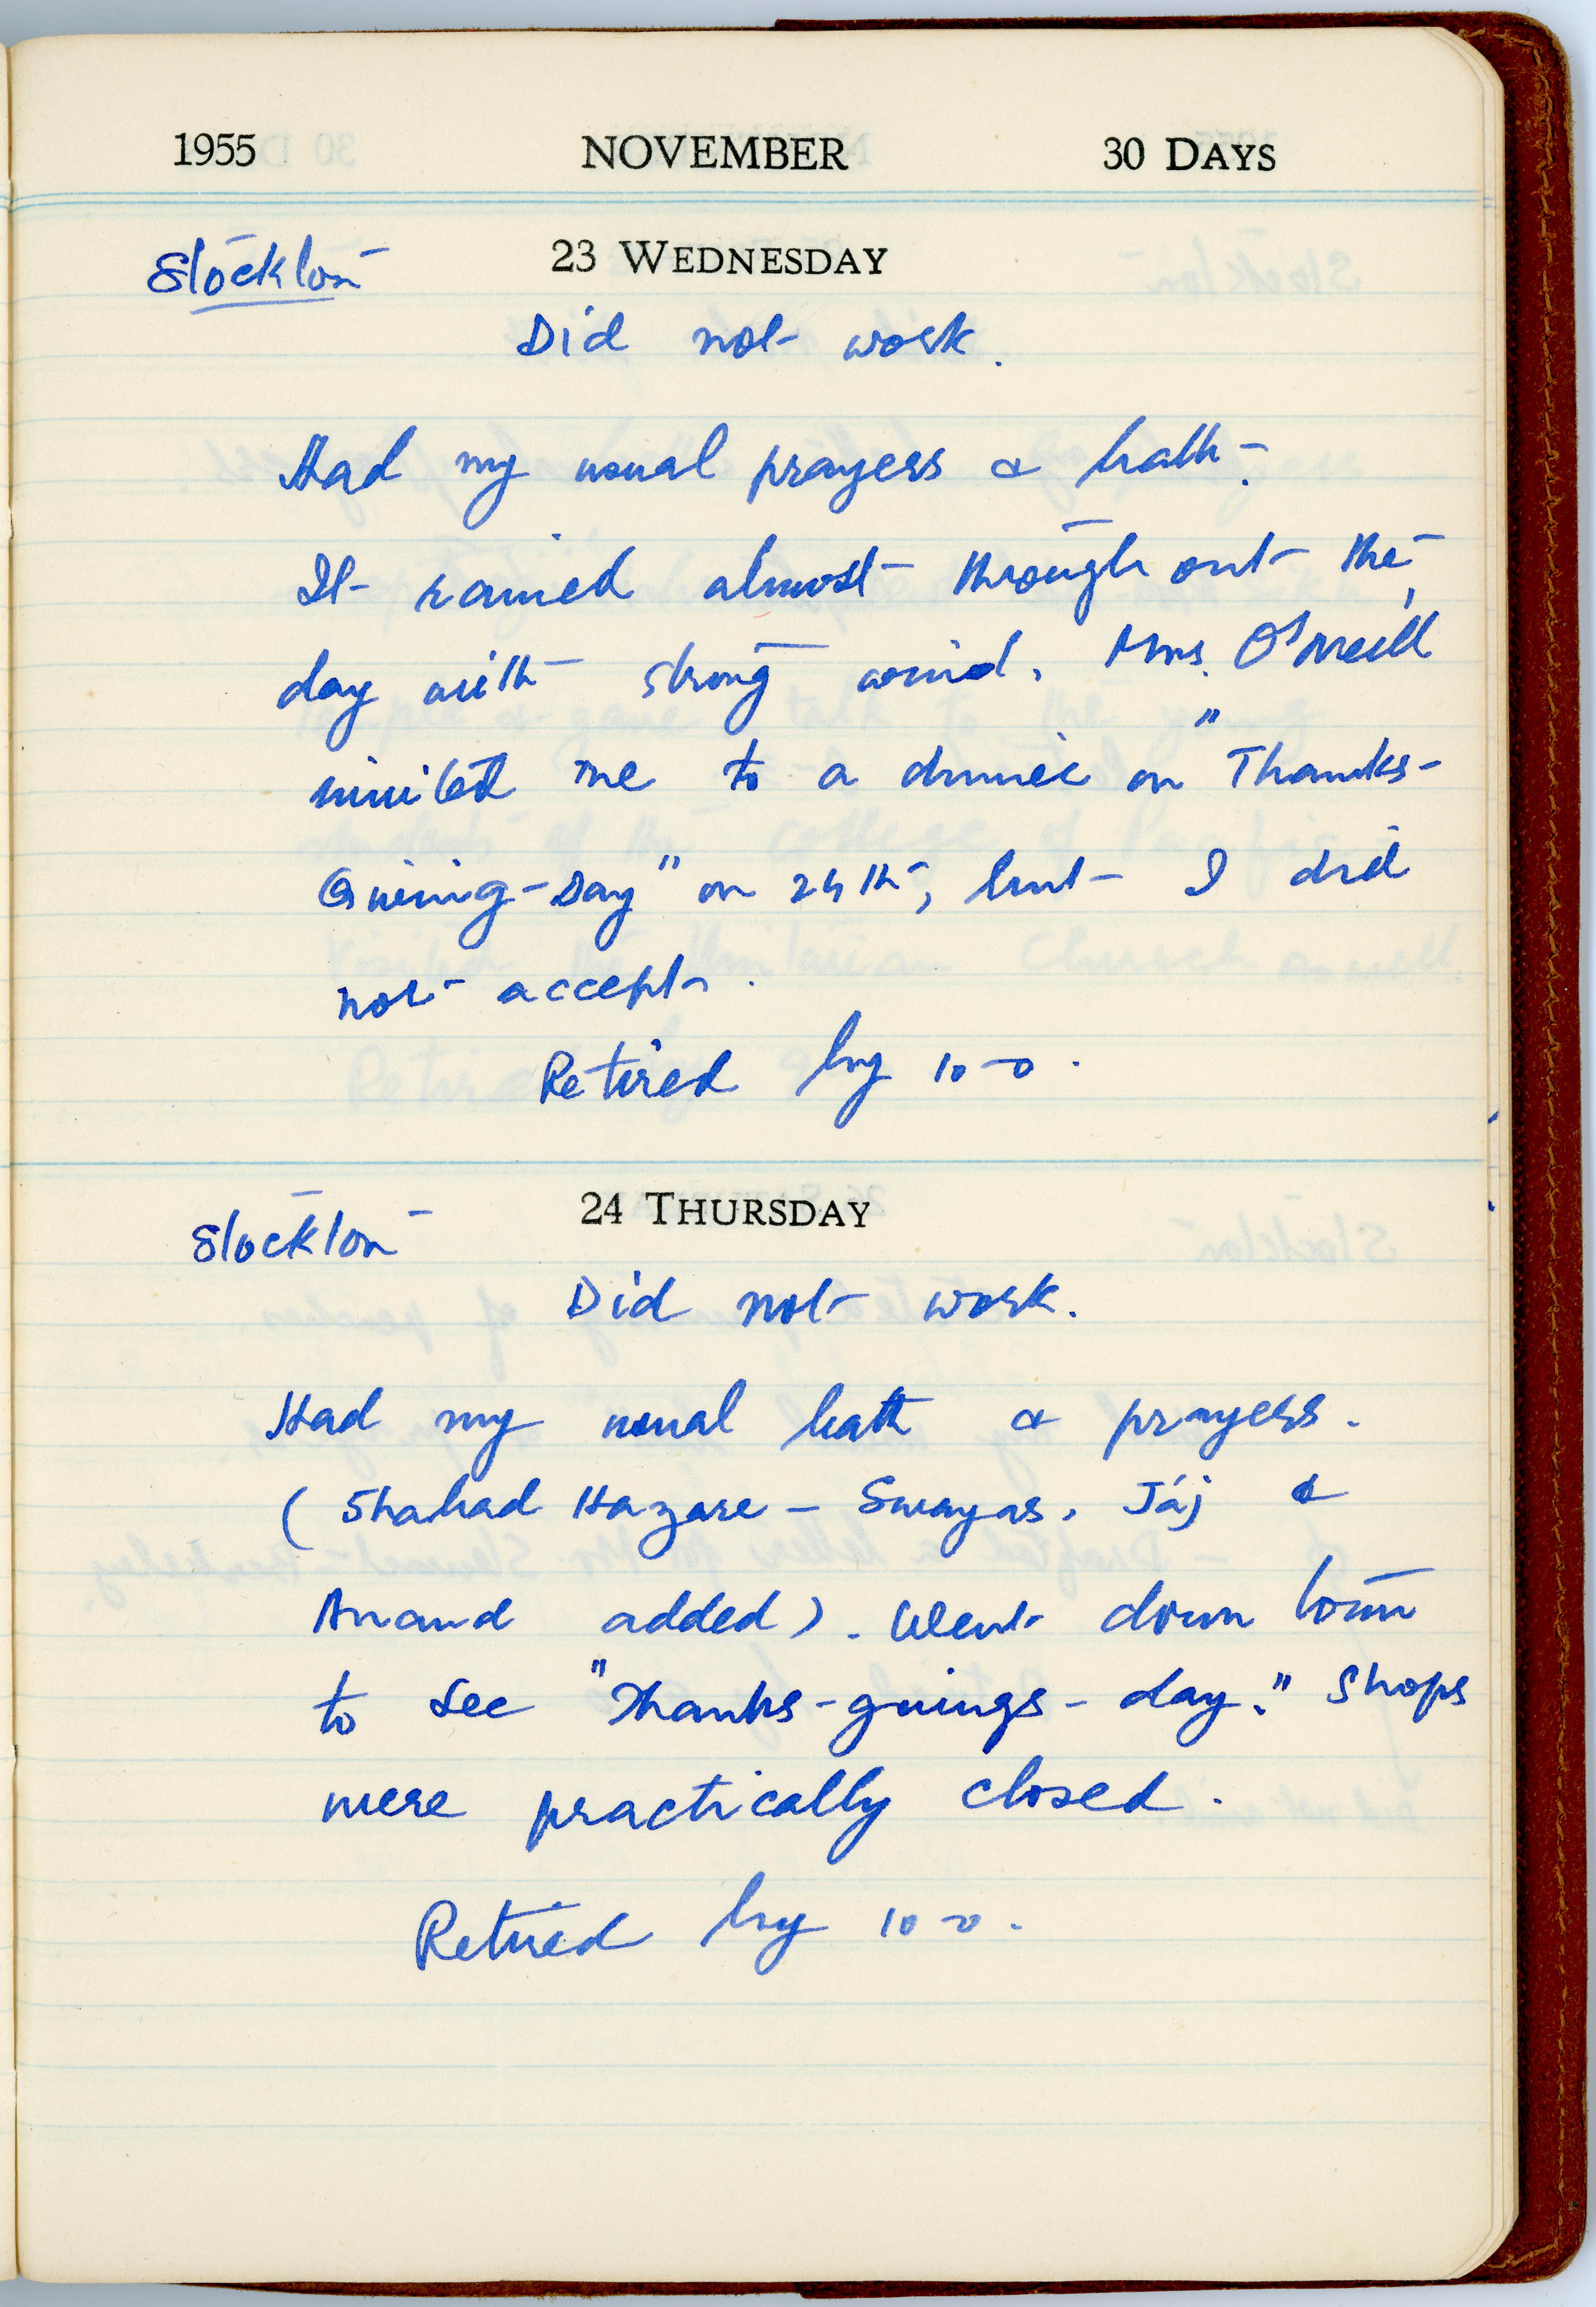 1955 NOVEMBER 30 DAYS
Stockton 23 WEDNESDAY
Did not work.
Had my usual prayers & bath.
It rained almost through out the
day with strong wind. Mrs. O'Neill
invited me to a dinner on "Thanks-
Giving-Day" on 24th, but I did
not accept.
Retired by 10-0.
24 THURSDAY
Stockton
Did not work.
Had my usual bath & prayers.
(Shabad Hazare - Swayas, Jáj &
Anand added). Went down town
to see "Thanks-givings-day." Shops
were practically closed.
Retired by 10-0.